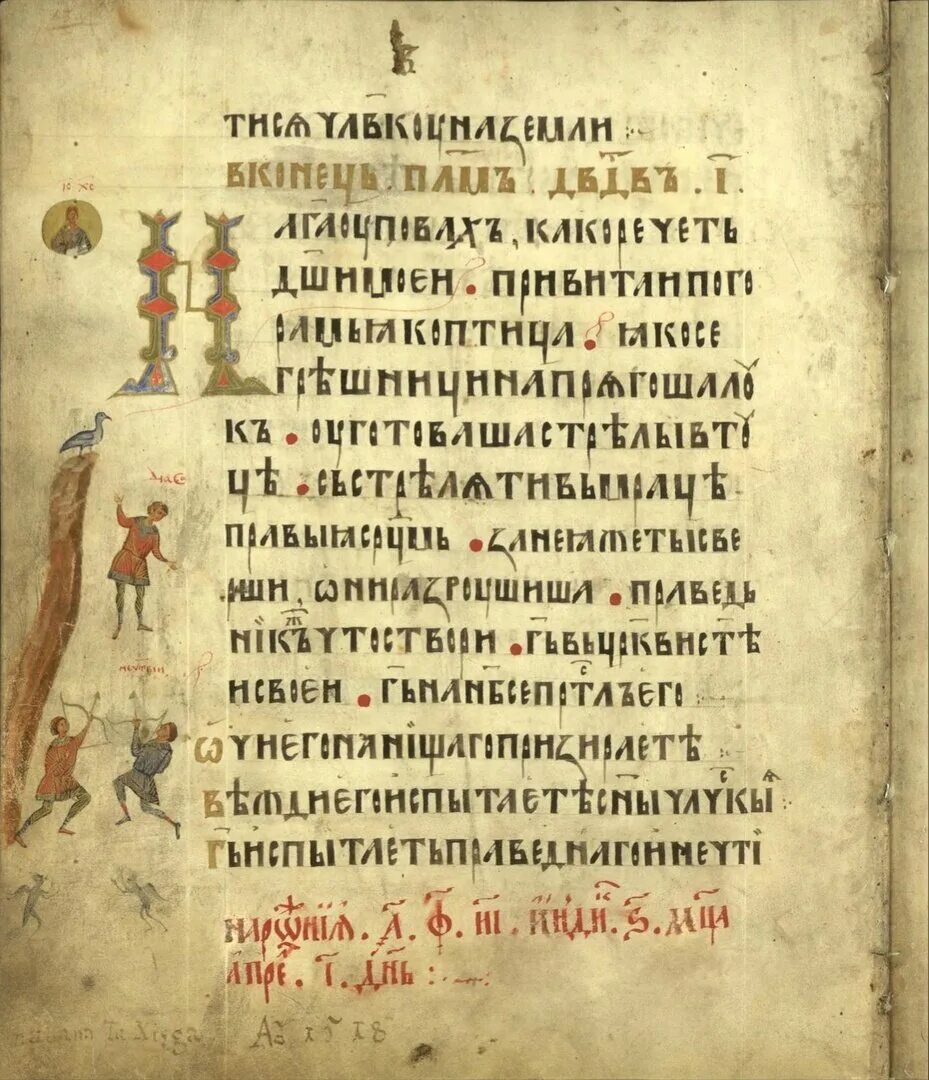 іс хс
тисѧчл҃вкоуназемли
вконець. п҃лмъ. дв҃двъ. і҃.
Нага҃оуповахъ, какоречеть
дш҃имоеи . привитаипого
рамъꙗкоптица . ꙗкосе
грѣшницинапрѧгошалоу
къ . оуготовашастрѣлывтоу
цѣ . състрѣлѧтивъмрацѣ
правыꙗсрц҃мь . занеꙗжетысве
рши, ѡниразроушиша . праведь
нікж҃ечтоствори . гь҃вьцр҃квистѣ
исвоеи . гь҃нанб҃сепрст҃лъего
ѡчиегонанищагопризираетѣ
вѣждиегоиспытаетѣсн҃ычлчс҃кыѧ
гь҃испытаетьправеднагоинечті
. а҃. ф҃. иі҃. инди҃. ѕ҃. мц҃а
апре҃. і҃. дн҃ь :
1518